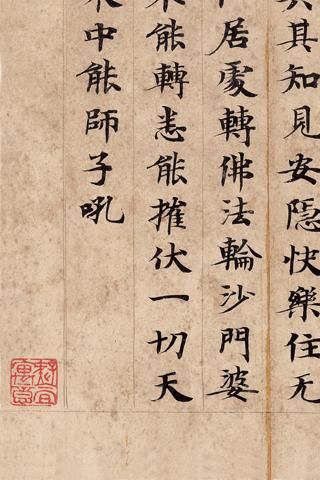 其知見安隱快樂住无
居處轉佛法輪沙門婆
能轉悉能摧伏一切天
中能師子吼